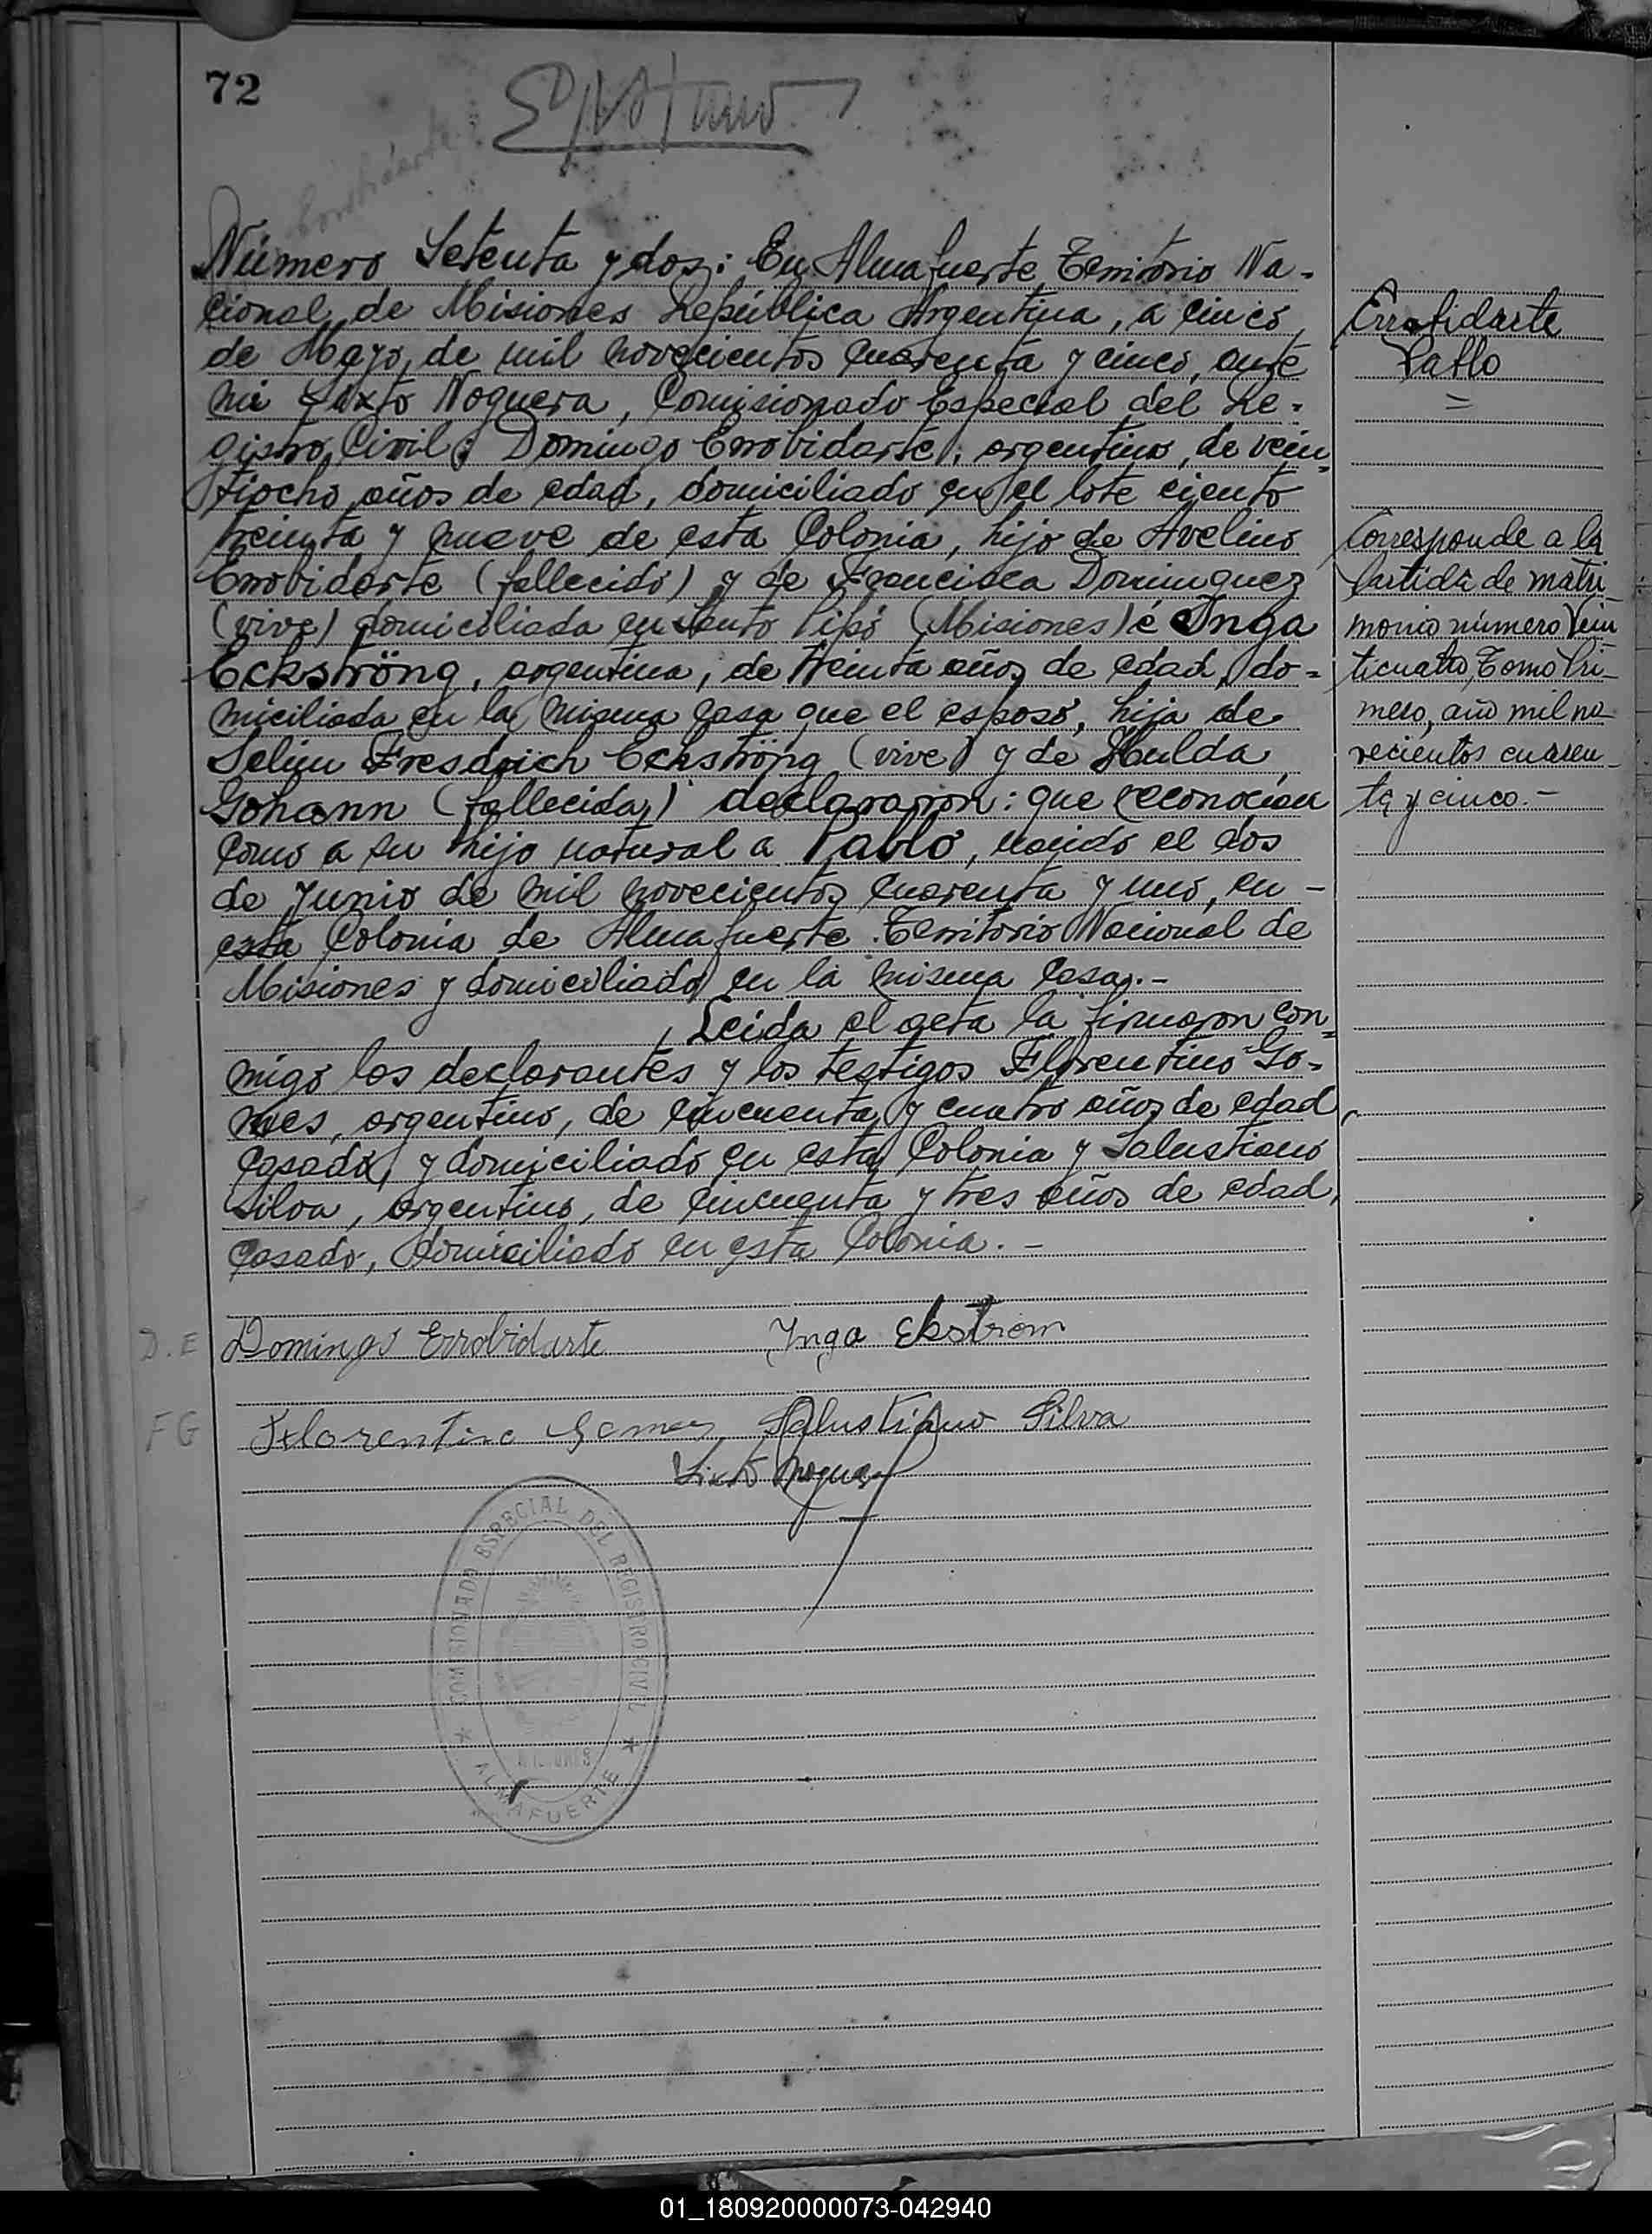 72
Número Setenta y dos: En Almafuerte Territorio Na-
cional de Misiones República Argentina, a cinco
de Mayo, de mil novecientos cuarenta y cinco, ante
mi Sixto Noguera, Comisionado Especial del Re-
gistro Civil; Domingo Errobidarte, argentino, de vein-
tiocho años de edad, domiciliado en el lote ciento
treinta y nueve de esta Colonia, hijo de Avelino
Errobidarte (fallecido) y de Francisca Dominguez
(vive) domiciliada en Santo Pipó (Misiones) é Inga
Eckströng, argentina, de treinta años de edad, do-
miciliada en la misma casa que el esposo, hija de
Selim Fresdrich Eckströng (vive) y de Hulda
Gohann (fallecida) declararon: que reconocian
como a su hijo natural a Pablo, nacido el dos
de Junio de mil novecientos cuarenta y uno, en-
esta Colonia de Almafuerte Territorio Nacional de
Misiones y domiciliado en la misma casa.-
Leida el acta la firmaron con-
migo los declarantes y los testigos Florentino Go-
mes, argentino, de cincuenta y cuatro años de edad,
casado, y domiciliado en esta Colonia y Salustiano
Silva, argentino, de cincuenta y tres años de edad,
casado, domiciliado en esta Colonia.-
D.E Domingo Errobidarte Inga Ekstrom
FG Florentino Gomes Salustiano Silva
Sixto Noguera
COMISIONADO ESPECIAL DEL REGISTRO CIVIL
* ALMAFUERTE *
Errobidarte
Pablo
=
Corresponde a la
Partida de matri-
monio número Vein
ticuatro, Tomo Pri-
mero, año mil no-
vecientos cuaren-
ta y cinco.-
01_180920000073-042940